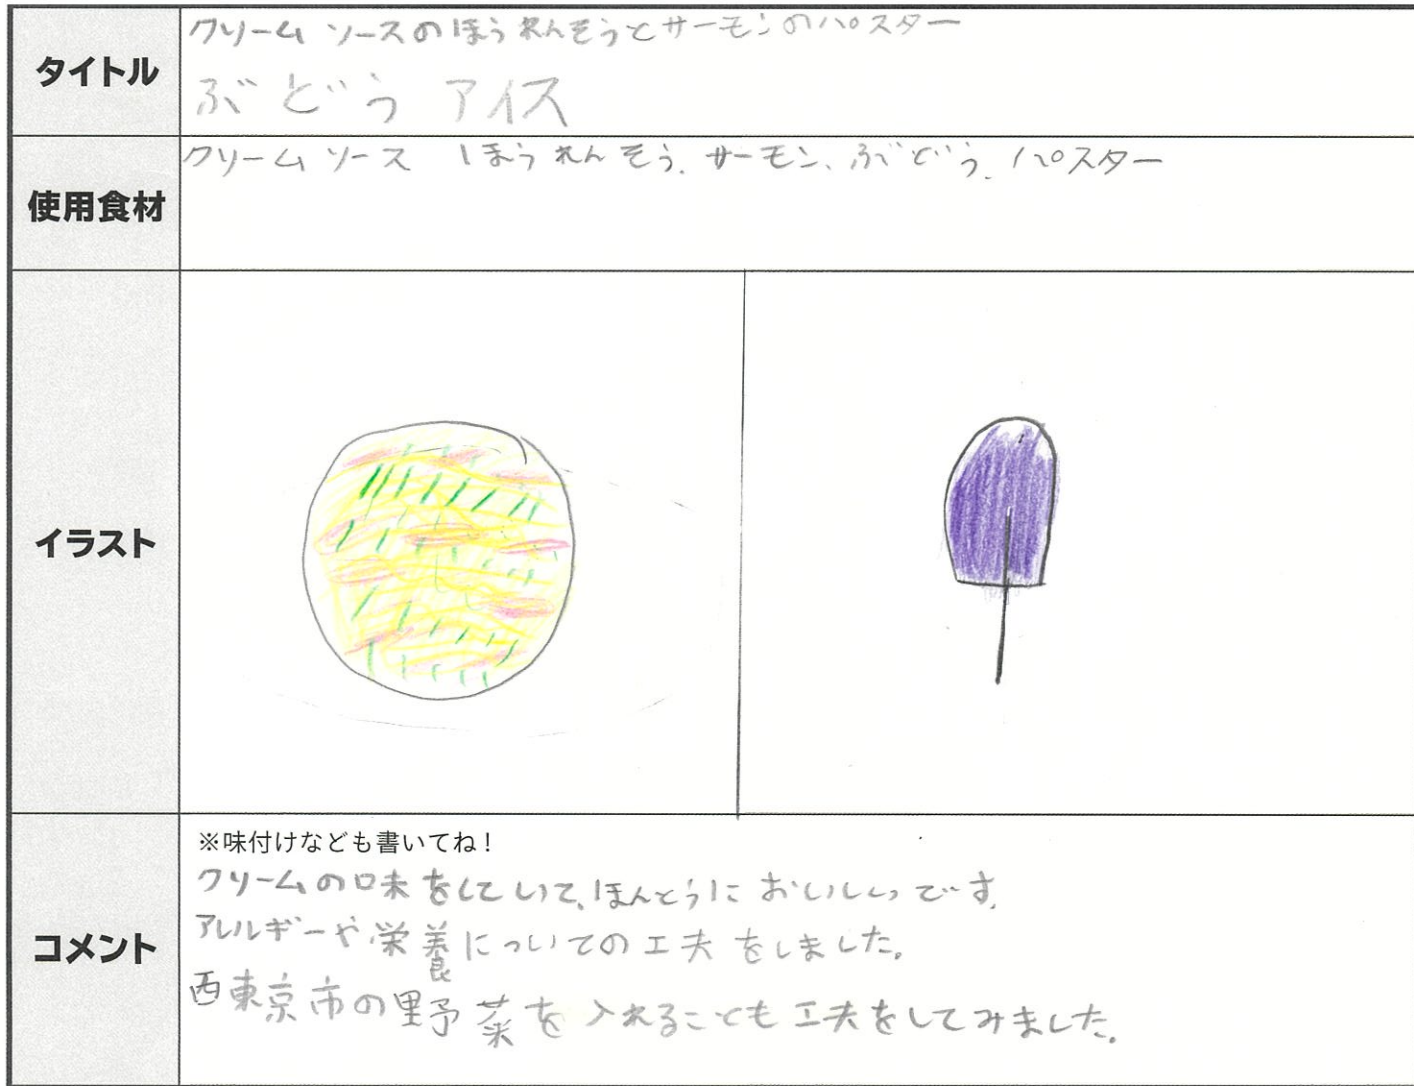 タイトル
クリームソースのほうれんそうとサーモンのパスター
ぶどうアイス
使用食材
クリームソース ほうれんそう、サーモン、ぶどう、パスター
イラスト
コメント
※味付けなども書いてね!
クリームの味をしていて、ほんとうにおいしいです。
アレルギーや栄養についての工夫をしました。
西東京市の野菜を入れることも工夫をしてみました。